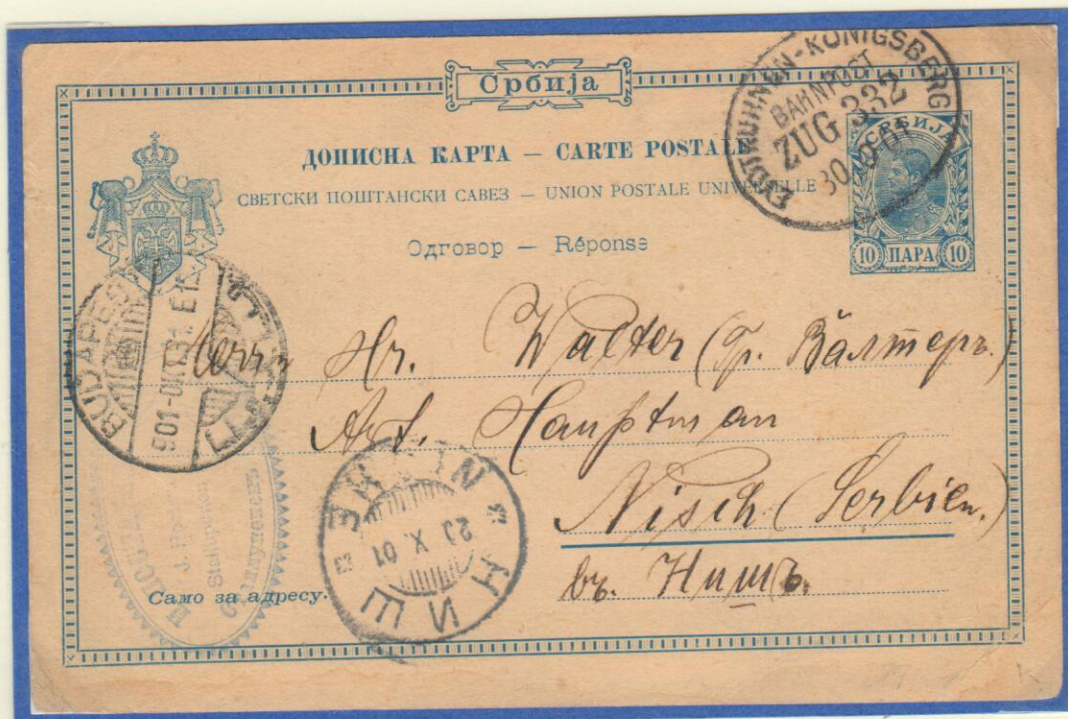 Србија
ДОПИСНА КАРТА — CARTE POSTALE
СВЕТСКИ ПОШТАНСКИ САВЕЗ — UNION POSTALE UNIVERSELLE
Одговор — Réponse
EYDTKUHNEN-KÖNIGSBERG
BAHNPOST
ZUG 332
СРБИЈА
10 ПАРА 10
BUDAPEST
Herrn Hr. Walter (Гр. Валтеръ.)
Art. Hauptman
Nisch (Serbien.)
въ. Нишъ.
X. 01
НИШ
Само за адресу.